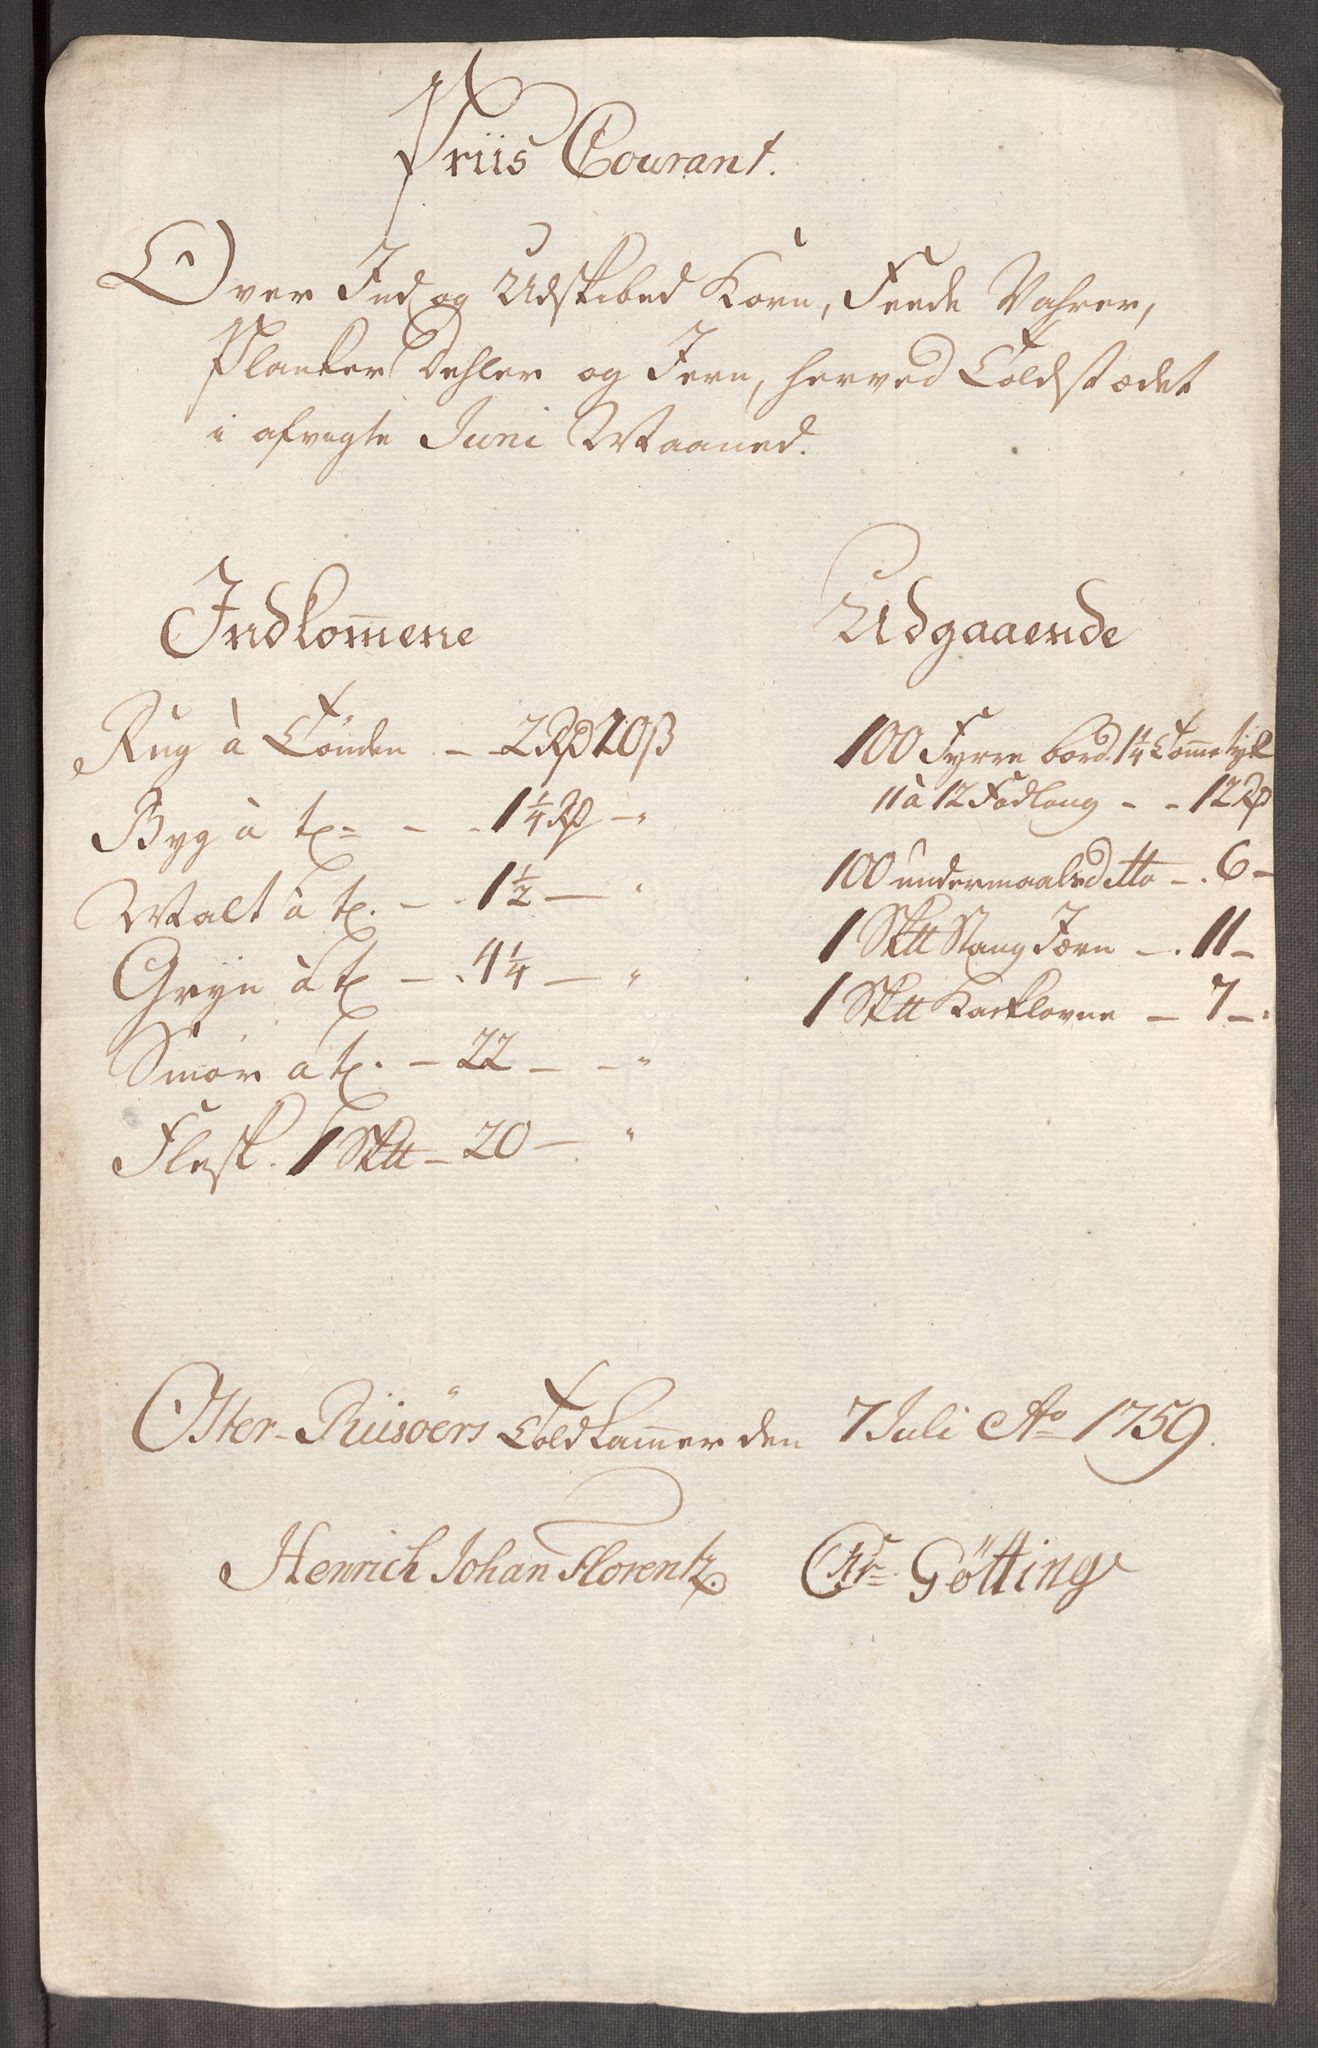 Priis Courant.
Over Ind og Udskibed Korn, Feede Vahrer,
Planker Dehler og Jern, herved Toldstædet
i afvigte Juni Maaned.
Indkom̅ene
Rug à Tønden - 2 Rd 20 ß
Byg à t. - - 1 1/4 Rd - "
Malt à t. - - 1 1/2 - "
Gryn à t. - - 4 1/4 - "
Smør à t. - 22 - - "
Flesk. 1 Sk℔ - 20 - "
Udgaaende
100 Fyrre bord 1 1/4 Tomme tyk
11 à 12 Fod lang - - 12 Rd
100 undermaals ditto - . 6 -
1 Sk℔ Stang Jærn - . 11 -
1 Sk℔ Kackelovne - 7 - "
Øster-Riisöers Toldkammer den 7 Juli Ao 1759.
Henrich Johan Florentz. Chr= Götting